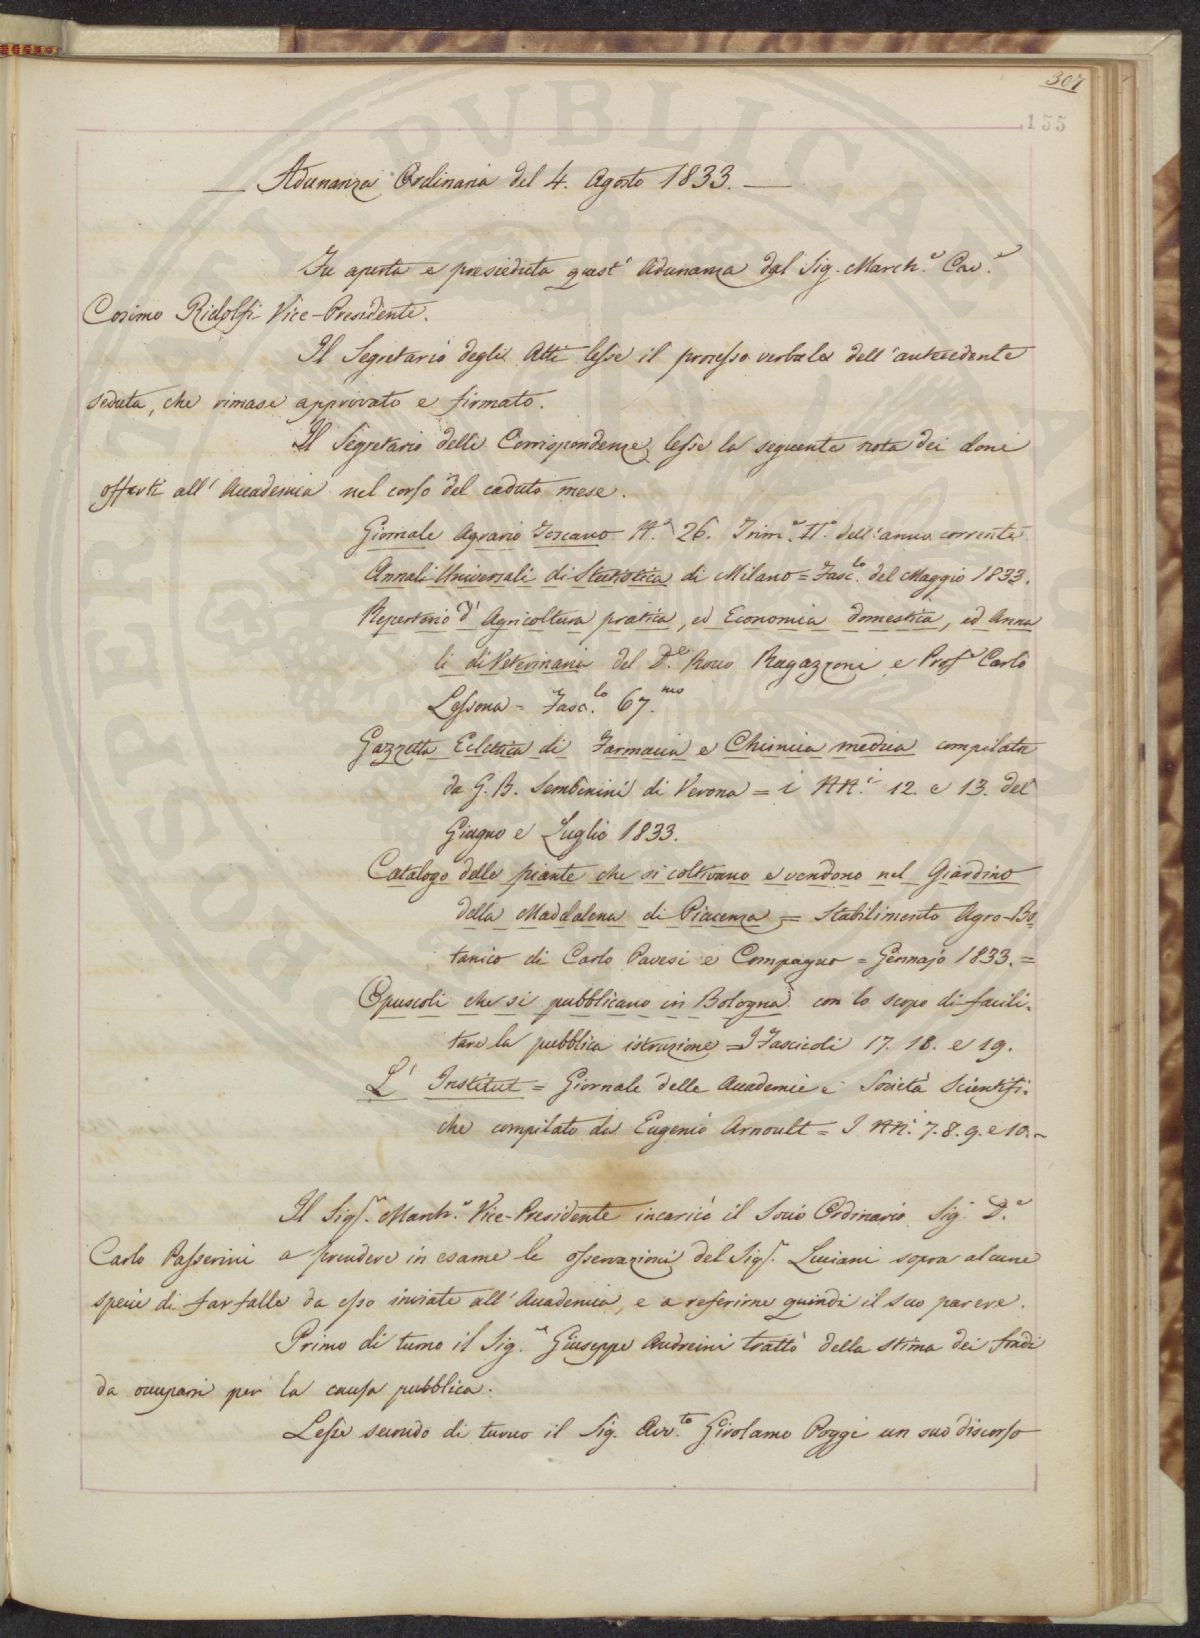 307
155
— Adunanza Ordinaria del 4. Agosto 1833. —
Fu aperta e presieduta quest' Adunanza dal Sig. March.e Cav.e
Cosimo Ridolfi Vice-Presidente.
Il Segretario degli Atti lesse il processo verbale dell'antecedente
seduta, che rimase approvato e firmato.
Il Segretario delle Corrispondenze lesse la seguente nota dei doni
offerti all'Accademia nel corso del caduto mese.
Giornale Agrario Toscano N.o 26. Trim.e II.o dell'anno corrente
Annali Universali di Statistica di Milano = Fasc.lo del Maggio 1833.
Repertorio d'Agricoltura pratica, ed Economia domestica, ed Anna
li di Veterinaria del D.e Rocco Ragazzoni e Prof.e Carlo
Lessona = Fasc.lo 67.mo
Gazzetta Ecletica di Farmacia e Chimica medica compilata
da G. B. Sembenini di Verona = i NN.i 12. e 13. del
Giugno e Luglio 1833.
Catalogo delle piante che si coltivano e vendono nel Giardino
della Maddalena di Piacenza = Stabilimento Agro-Bo
tanico di Carlo Pavesi e Compagno = Gennajo 1833. =
Opuscoli che si pubblicano in Bologna con lo scopo di facili-
tare la pubblica istruzione = I Fascicoli 17. 18. e 19.
L' Institut = Giornale delle Accademie e Società Scientifi-
che compilato da Eugenio Arnoult = I NN.i 7. 8. 9. e 10. ~
Il Sig.r March.e Vice-Presidente incaricò il Socio Ordinario Sig. D.e
Carlo Passerini a prendere in esame le osservazioni del Sig.r Luciani sopra alcune
specie di farfalle da esso inviate all'Accademia, e a referirne quindi il suo parere.
Primo di turno il Sig.r Giuseppe Andreini trattò della stima dei fondi
da occuparsi per la causa pubblica.
Lesse secondo di turno il Sig. Avv.to Girolamo Poggi un suo discorso